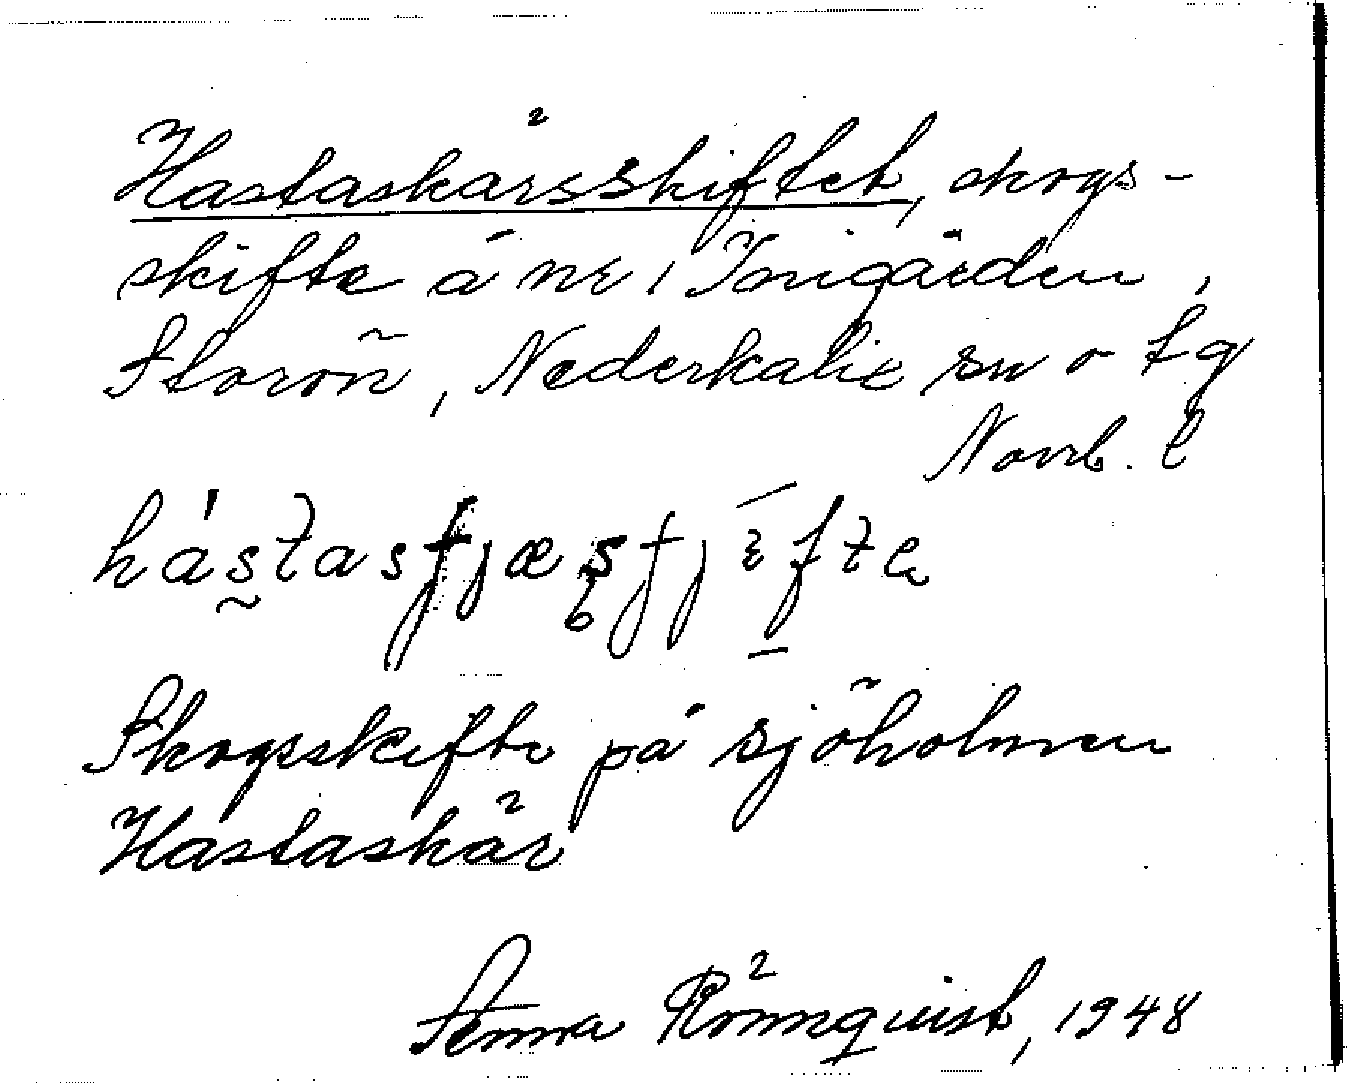 Hastaskärsskiftet, skogs-
skifte å nr 1 Jonigården,
Storön, Nederkalix sn o tg
Norrb. l
Skogsskifte på sjöholmen
Hastaskär
Senna Rönnquist, 1948